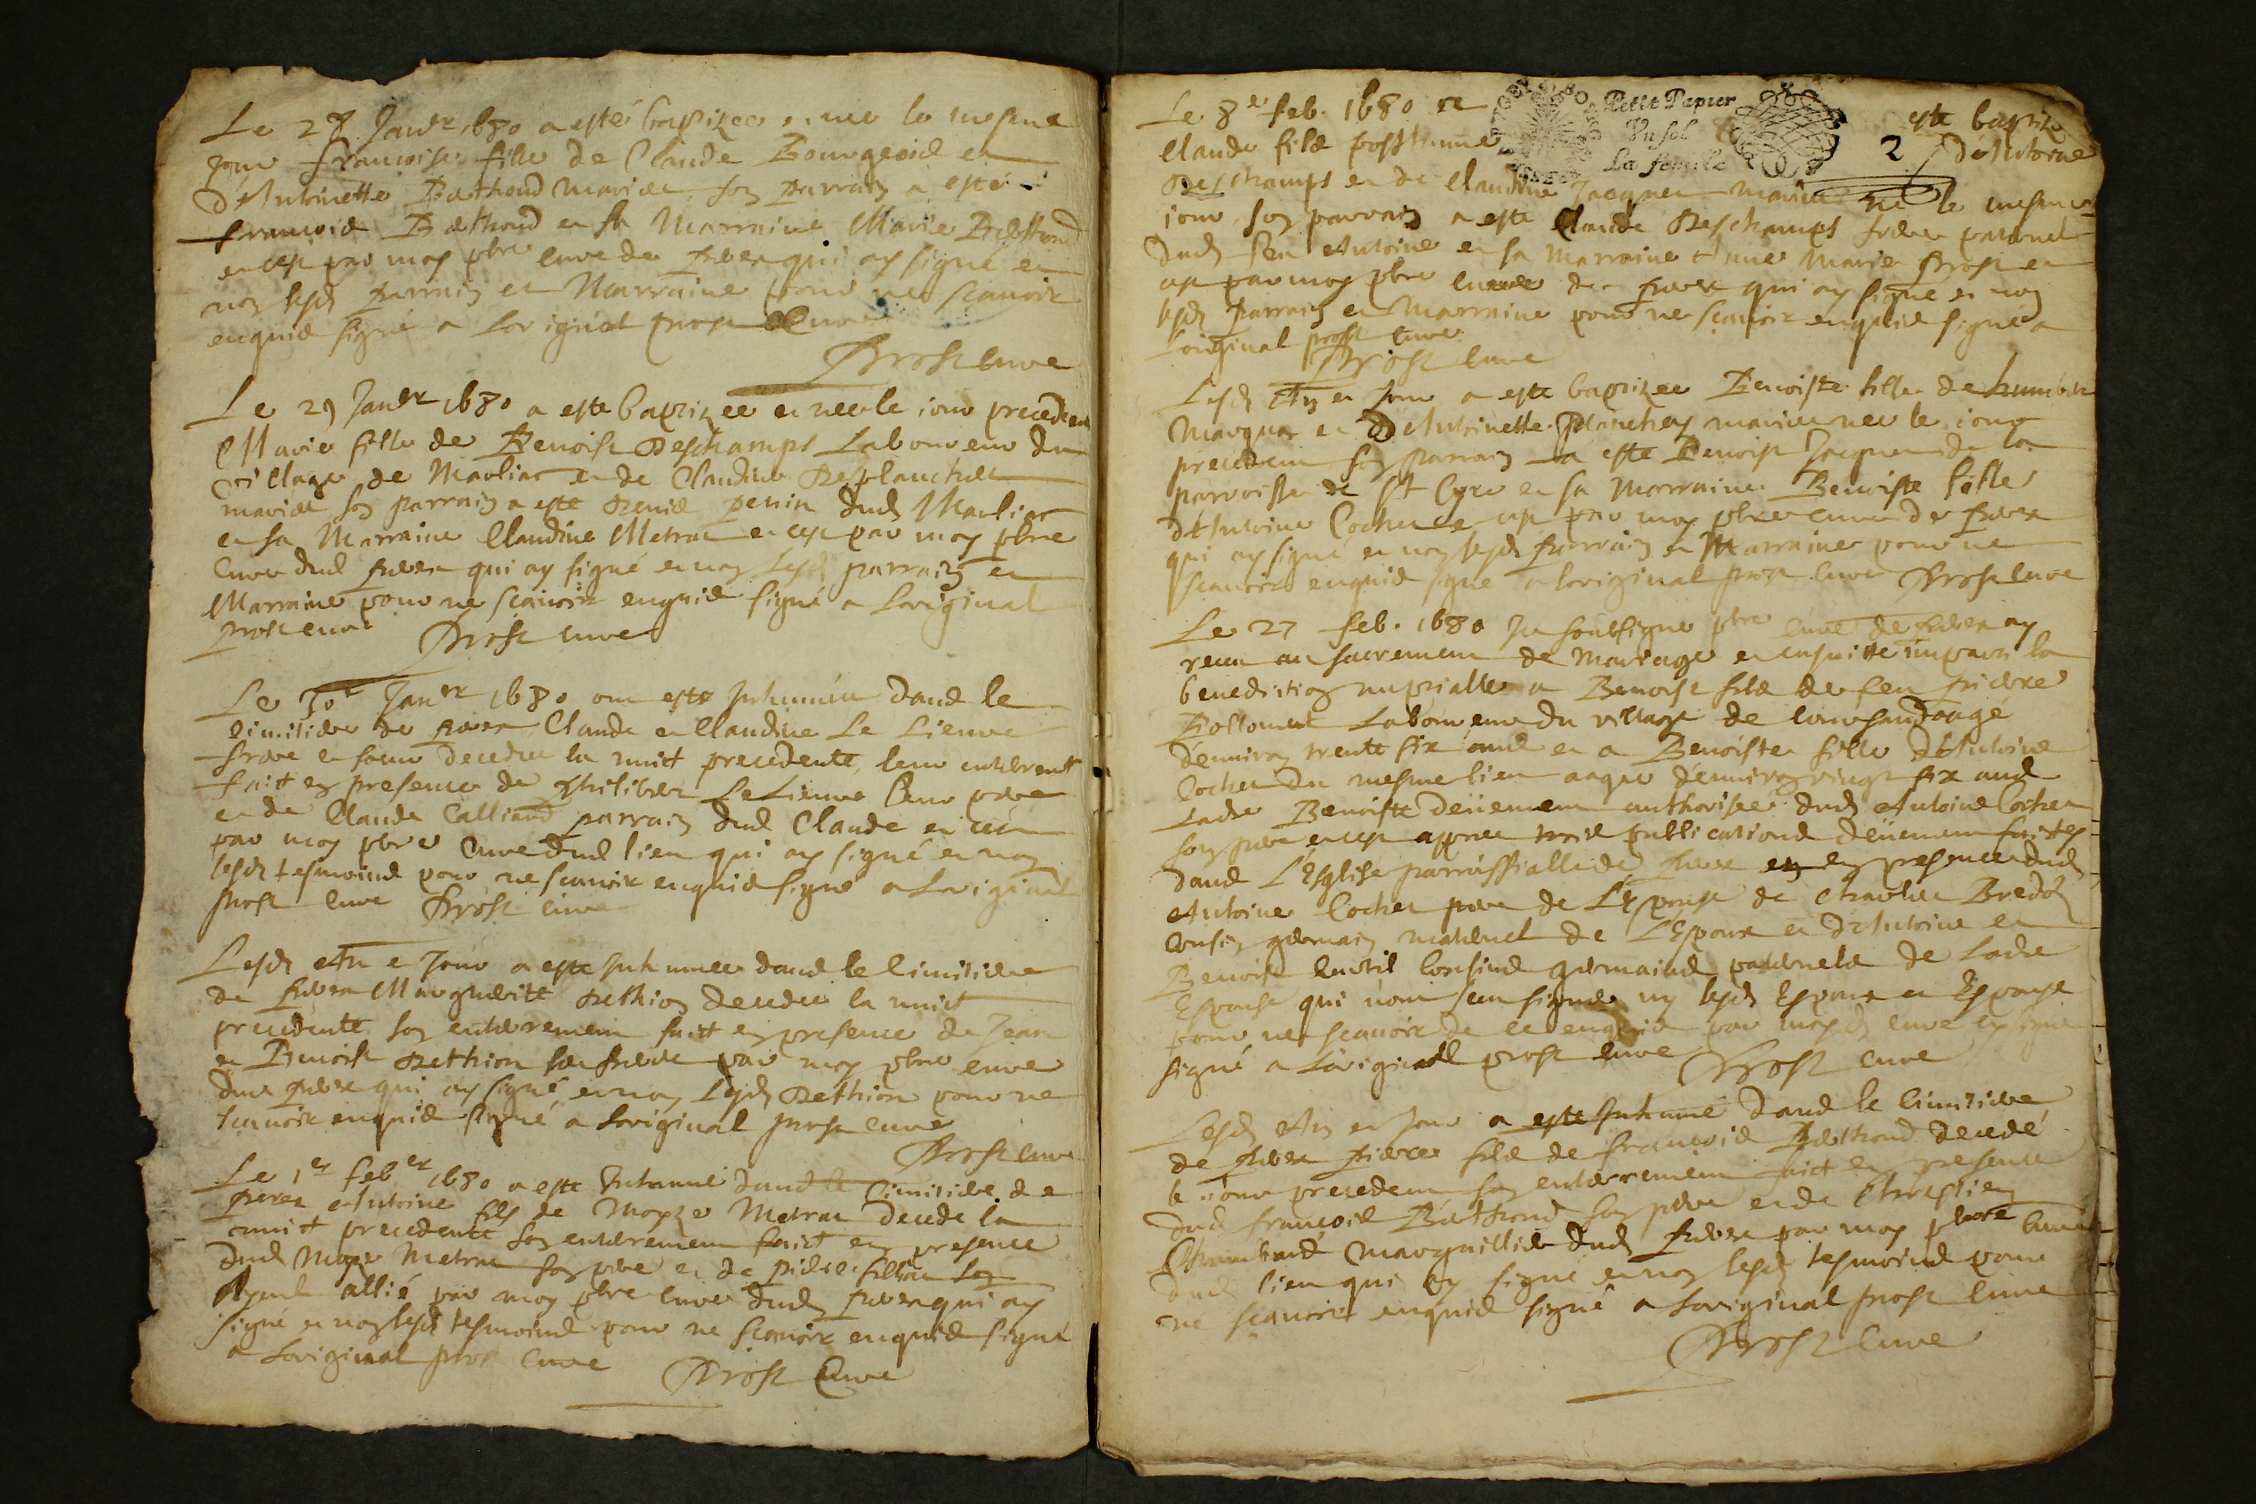 Le 28 Janr 1680 a esté baptizee et nee le mesme
jour françoise fille de Claude Bourgeois et
d'Antoinette Bathend mariée son parrain a esté
françois Bathend et sa Marraine Marie Bathend
et cest par moy pbre Curé de qui ay signé et
non lesds parrain et Marraine pour ne scavoir
enquis signé a Loriginal prost Curé
Prost Curé
Le 29 Janr 1680 a este baptizee et nee le jour precedent
Marie fille de Benoist Deschamps Laboureur du
village de Marliac et de Claudine Desplanches
mariée son parrain a este Denis dud Marliac
et sa Marraine Claudine Metrat et cest par moy pbre
Curé dud qui ay signé et non lesds parrain et
Marraine pour ne scavoir enquis signé a Loriginal
prost curé Prost Curé
Le 30e Janr 1680 ont este Inhumés dans le
Cimitiere de Claude et Claudine Le Lievre
frere et soeur decedés la nuict precedente, leur enterremt
faict en presence de philibert Le Lievre leur pere
et de Claude Calliand parrain dud Claude et ce
par moy pbre Curé dud lieu qui ay signé et non
lesds tesmoins pour ne scavoir enquis signé a Loriginal
prost Curé Prost Curé
Lesds An et Jour a este Inhumee dans le Cimitiere
de Marguerite Dethion decedee la nuict
precedente son enterrement faict en presence de Jean
et Benoist Dethion ses freres par moy pbre curé
dud qui ay signé et non Lesds Dethion pour ne
scavoir enquis signé a Loriginal prost curé
Prost Curé
Le 1er febvr 1680 a este Inhumé dans le Cimitiere de
Antoine fils de Metrat decedé la
nuict precedente son enterrement faict en presence
dud Metrat son pere et de pierre son
allié par moy pbre Curé dud qui ay
signé et non lesds tesmoins pour ne scavoir enquis signé
a Loriginal prost Curé Prost Curé
Petit Papier
Un sol
La feuille
2
Le 8e feb. 1680 a este baptizé
Claude fils posthume d'Antoine
Deschamps et de Claudine Jacquet mariés né le mesme
jour son parrain a este Claude Deschamps frere paternel
dud feu Antoine et sa Marraine Marie Prost et
cest par moy pbre Curé de qui ay signé et non
lesds parrain et Marraine pour ne scavoir enquis signé a
Loriginal prost curé
Prost Curé
Lesds An et Jour a este baptizee Benoiste fille de humbert
Marguas et d'Antoinette Planchey mariée nee le jour
precedent son parrain a este Benoist Jacquet de la
parroisse de St Cyre et sa Marraine Benoiste fille
d'Antoine Cochet et cest par moy pbre curé de
qui ay signé et non lesds parrain et Marraine pour ne
scavoir enquis signé a loriginal prost Curé Prost Curé
Le 27 feb. 1680 Je soubsigné pbre Curé de ay
receu au sacrement de Mariage et ensuitte imparti la
benediction nuptialle a Benoist fils de feu pierre
Laboureur du village de
d'environ trente six ans et a Benoiste fille d'Antoine
Cochet du mesme lieu aagee d'environ vingt six ans
Ladte Benoiste deüement authorisée dud Antoine Cochet
son pere et cest apprès trois publications deüement faictes
dans L'Esglise parroissialle de en presence dud
Antoine Cochet pere de L'Espouse de Charles
Cousin germain maternel de L'Espoux et d'Antoine et
Benoist Cousins germains paternels de Ladte
Espouse qui n'ont sceu signer ny lesds Espoux et Espouse
pour ne scavoir de ce enquis par moyd curé
signé a Loriginal prost curé Prost curé
Lesds An et Jour a este Inhumé dans le Cimitiere
de pierre fils de françois Bathend decedé
le jour precedent son enterrement faict en presence
dud françois Bathend son pere et de Chrestien
Marguillier dud par moy pbre Curé
dud lieu qui ay signé et non lesds tesmoins pour
ne scavoir enquis signé a Loriginal prost Curé
Prost Curé